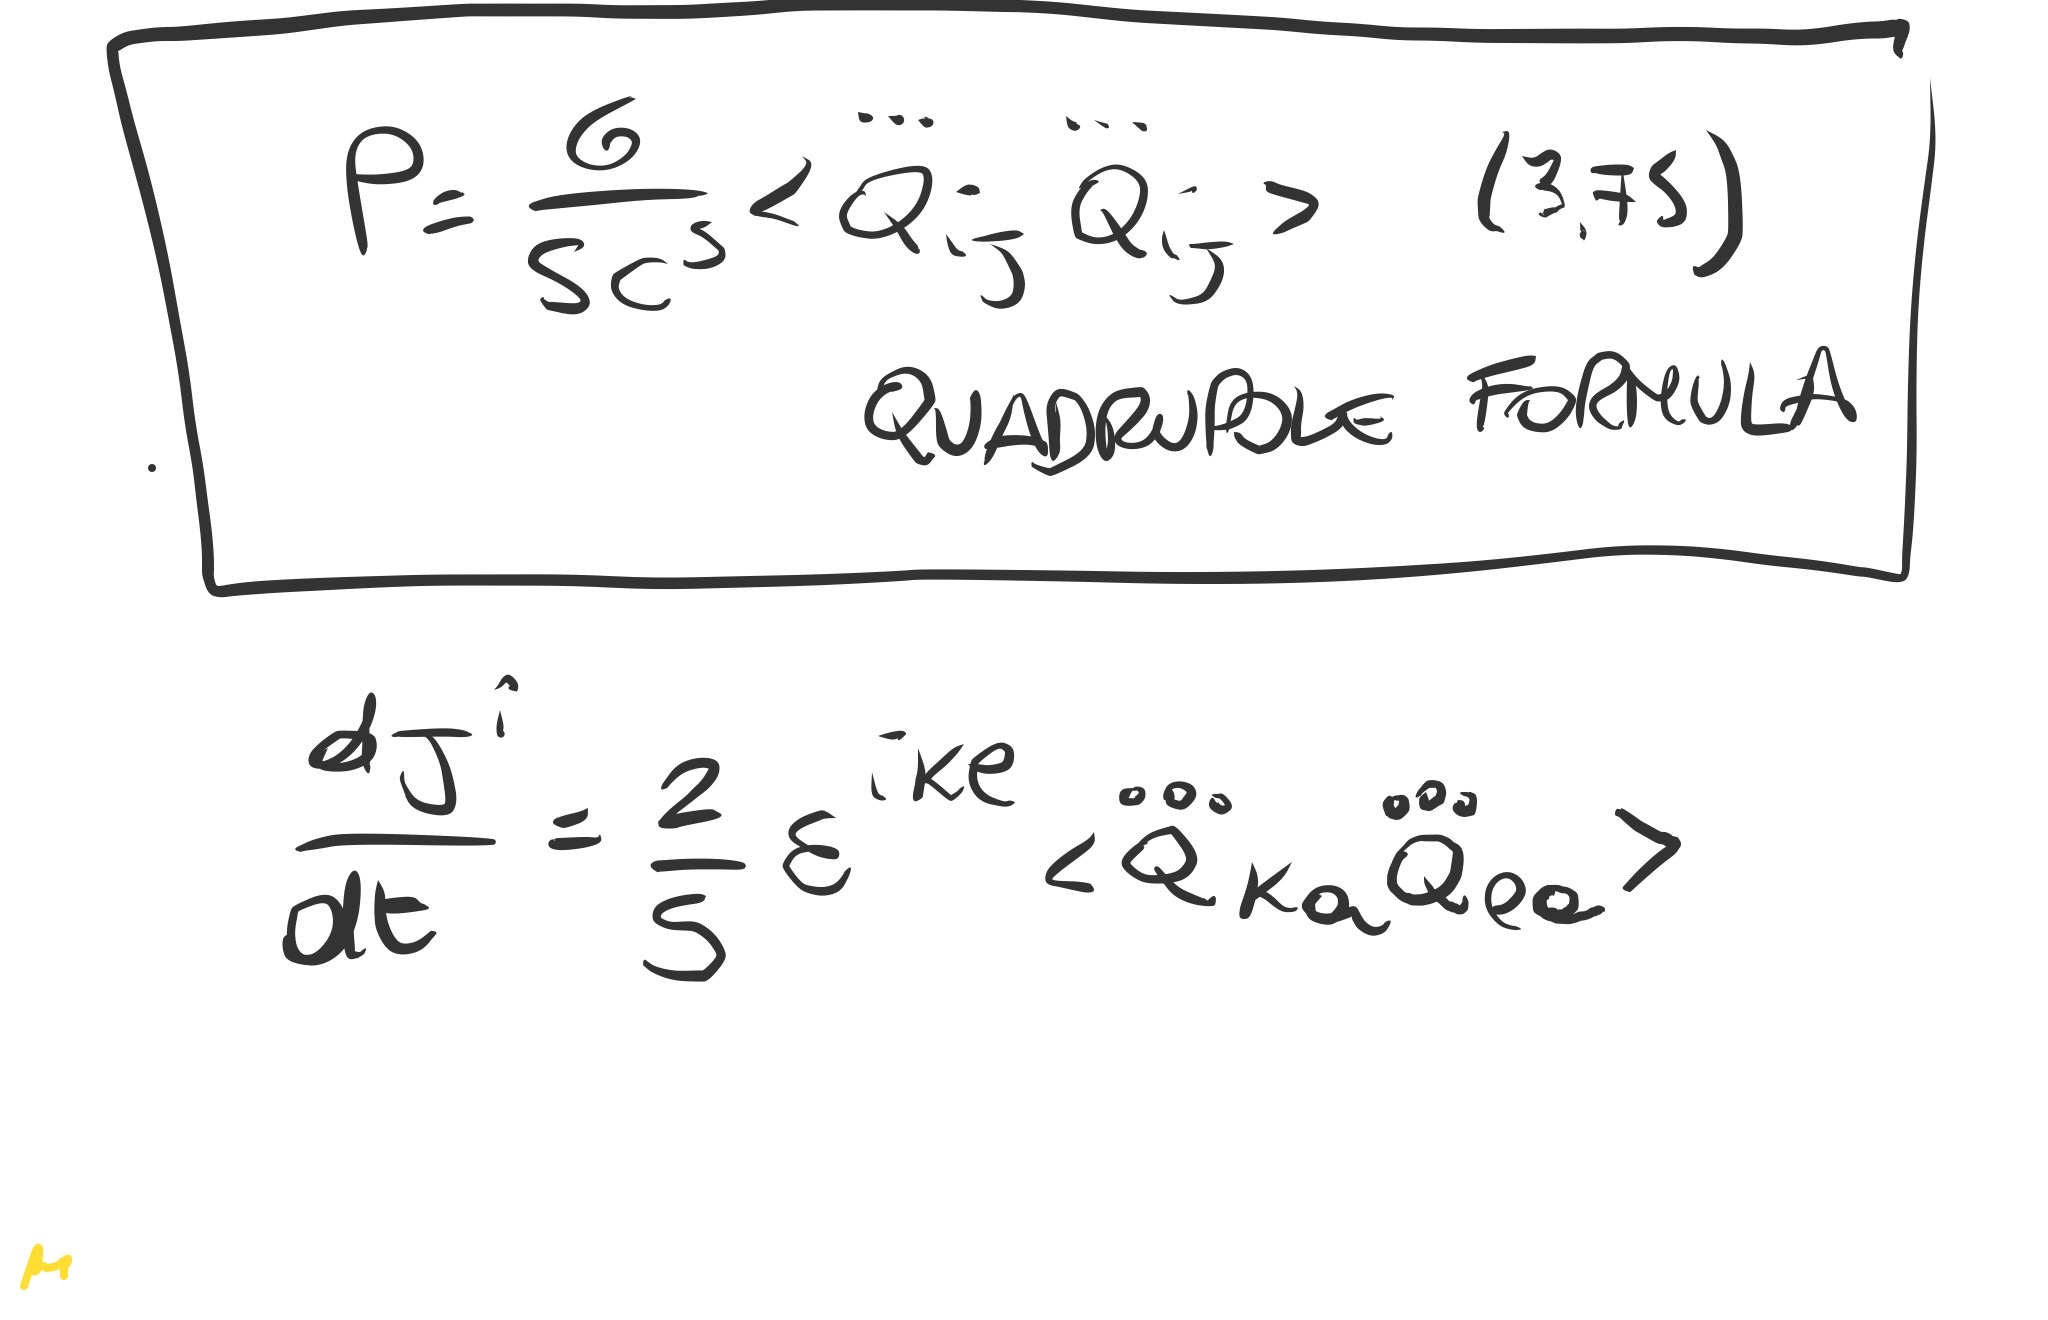 P = G/5c⁵ < Q⃛ᵢⱼ Q⃛ᵢⱼ > (3.75)
QUADRUPOLE FORMULA
dJⁱ/dt = 2/5 ε^{ikl} < Q⃛ₖₐ Q⃛ₗₐ >